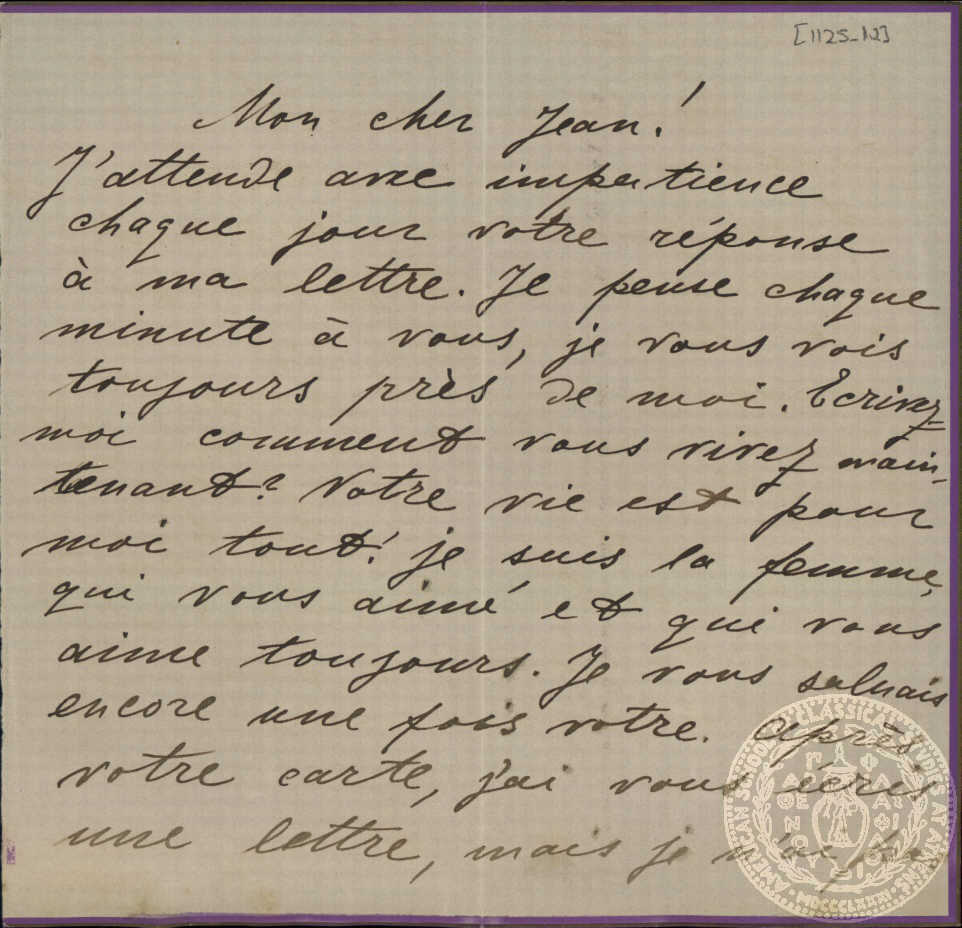 [1125-12]
Mon cher Jean!
J'attende avec impatience
chaque jour votre réponse
à ma lettre. Je pense chaque
minute à vous, je vous vois
toujours près de moi. Ecrivez
moi comment vous vivez main-
tenant? Votre vie est pour
moi tout! je suis la femme,
qui vous aimé et qui vous
aime toujours. Je vous saluais
encore une fois votre. Après
votre carte, j'ai vous écris
une lettre, mais je n'ai pas
AMERICAN SCHOOL OF CLASSICAL STUDIES AT ATHENS
MDCCCLXXXI